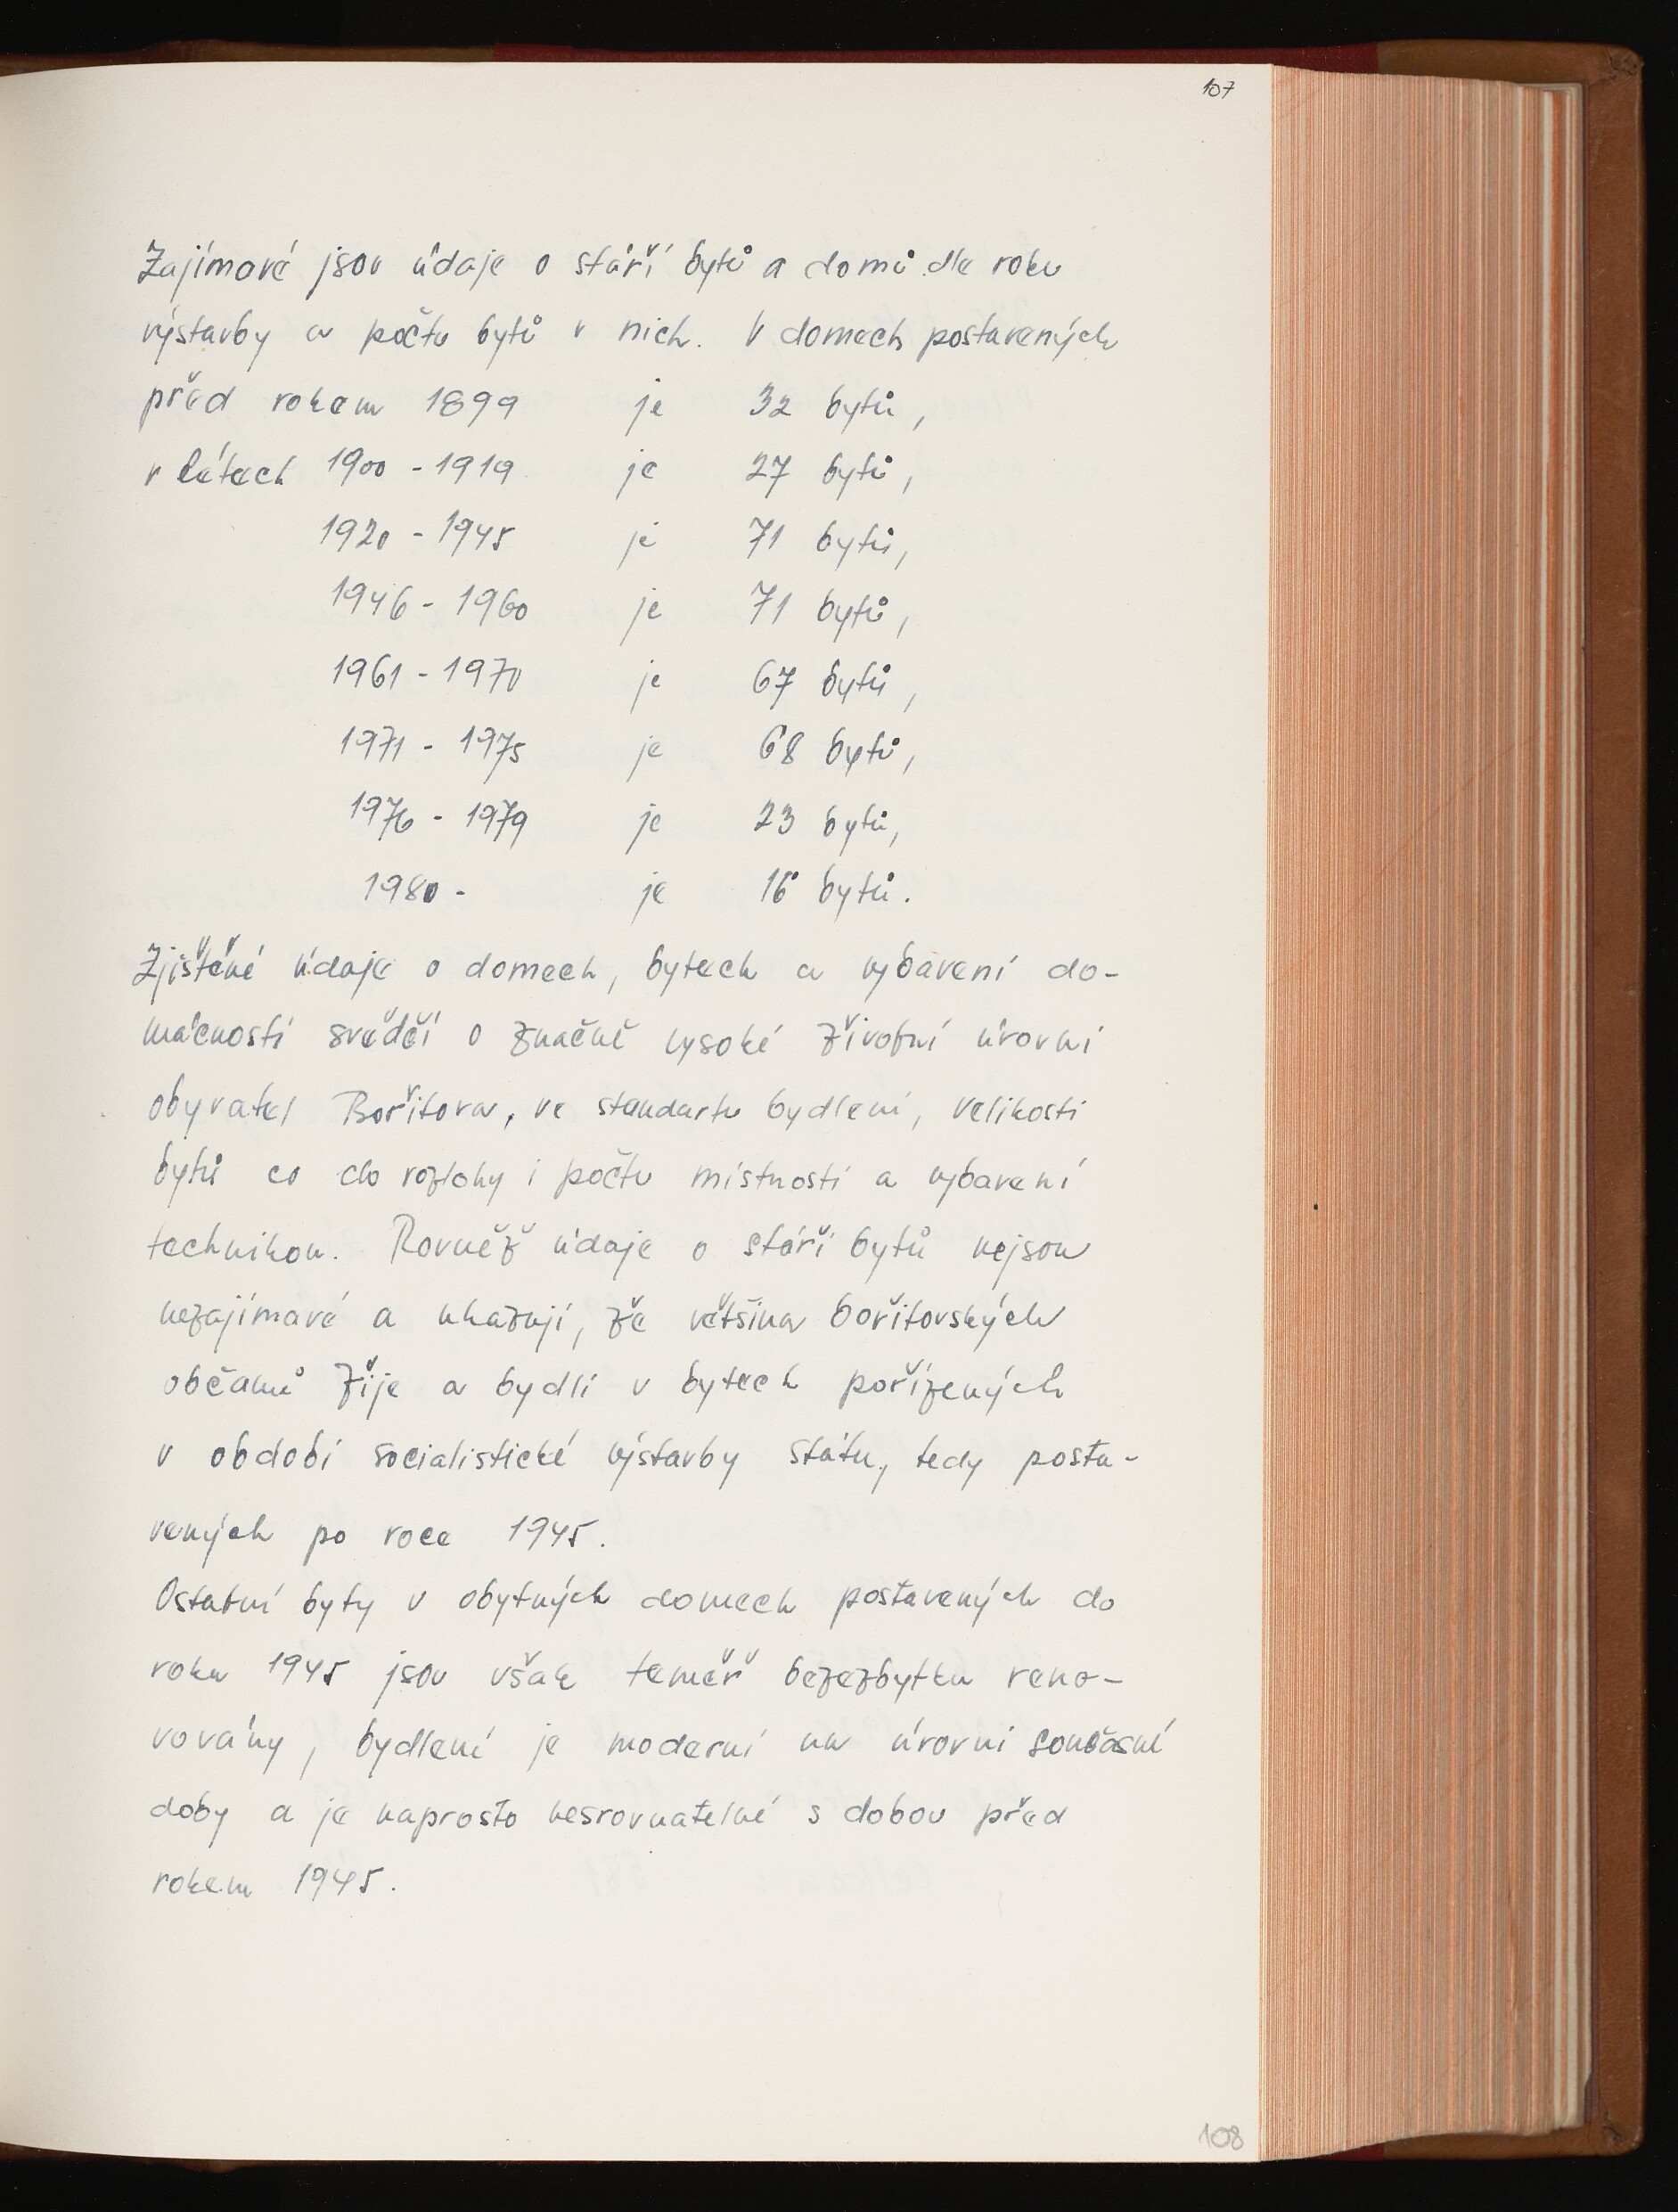 107
Zajímavé jsou údaje o stáří bytů a domů dle roku
výstavby a počtu bytů v nich. V domech postavených
před rokem 1899 je 32 bytů,
v létech 1900 - 1919 je 27 bytů,
1920 - 1945 je 71 bytů,
1946 - 1960 je 71 bytů,
1961 - 1970 je 67 bytů,
1971 - 1975 je 68 bytů,
1976 - 1979 je 23 bytů,
1980 - je 16 bytů.
Zjištěné údaje o domech, bytech a vybavení do-
mácností svědčí o značně vysoké životní úrovni
obyvatel Bořitova, ve standartu bydlení, velikosti
bytů co do rozlohy i počtu místností a vybavení
technikou. Rovněž údaje o stáří bytů nejsou
nezajímavé a ukazují, že většina bořitovských
občanů žije a bydlí v bytech pořízených
v období socialistické výstavby státu, tedy posta-
vených po roce 1945.
Ostatní byty v obytných domech postavených do
roku 1945 jsou však temeř bezezbytku reno-
vovány, bydlení je moderní na úrovni současné
doby a je naprosto nesrovnatelné s dobou před
rokem 1945.
108